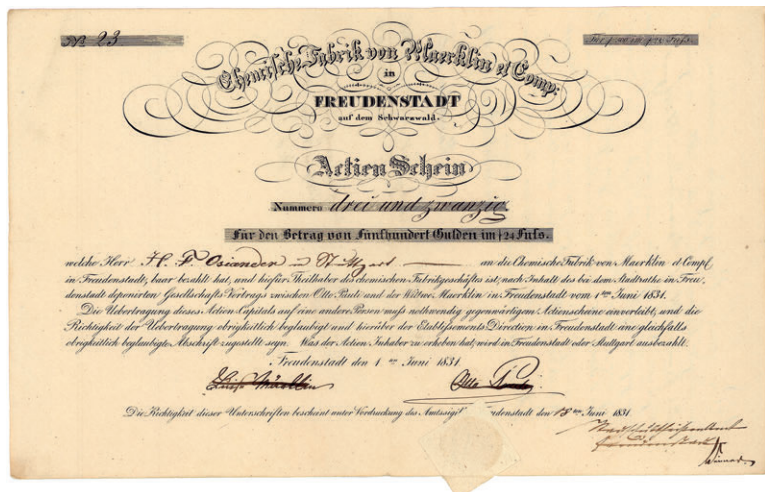 No 23
Chemische Fabrik von Maerklin et Comp:
in
FREUDENSTADT
auf dem Schwarzwald.
Actien Schein
Nummero drei und zwanzig
Für den Betrag von Fünfhundert Gulden im f 24 Fuſs.
welche Herr H. F. Osiander in Stuttgart an die Chemische Fabrik von Maerklin et Comp.
in Freudenstadt, baar bezahlt hat, und hiefür Theilhaber des chemischen Fabrikgeschäftes ist, nach Inhalt des bei dem Stadtrathe in Freu,
denstadt deponirten Gesellschafts Vertrags zwischen Otto Pauli und der Wittwe Maerklin in Freudenstadt vom 1ten Juni 1831.
Die Uebertragung dieses Actien Capitals auf eine andere Person muſs nothwendig gegenwärtigem Actienscheine einverleibt, und die
Richtigkeit der Uebertragung obrigkeitlich beglaubigt und hierüber der Etablissements Direction in Freudenstadt eine gleichfalls
obrigkeitlich beglaubigte Abschrift zugestellt seyn. Was der Actien Inhaber zu erheben hat, wird in Freudenstadt oder Stuttgart ausbezahlt.
Freudenstadt den 1ten Juni 1831.
Die Richtigkeit dieser Unterschriften bescheint unter Vordruckung des Amtssigil Freudenstadt den 18ten Juni 1831.
Stadtschultheißenamt
Freudenstadt